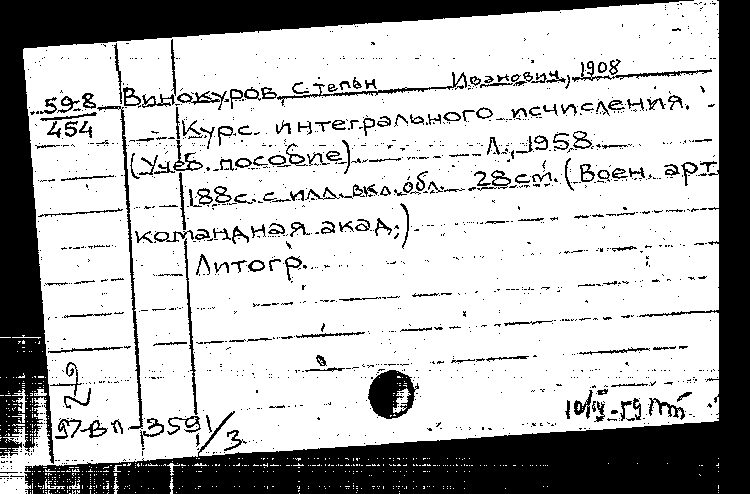 59-8
454
Винокуров, Степан Иванович, 1908
Курс интегрального исчисления.
(Учеб. пособие). Л., 1958.
188 с. с илл. вкл. обл. 28 cm. (Воен. арт.
командная акад.)
Литогр.
2
97-Вп-3591/3
10/IV-59